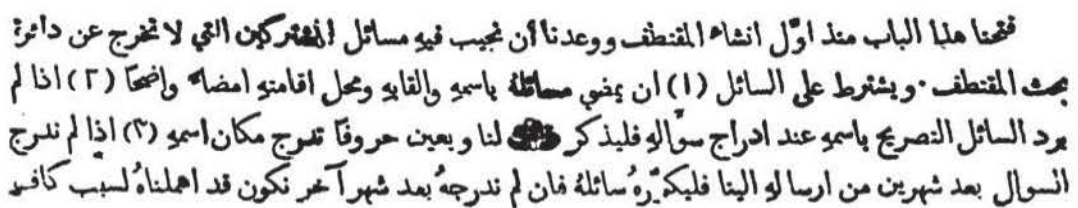 فتحنا هذا الباب منذ اوّل انشاء المقتطف ووعدنا أن نجيب فيهِ مسائل المشتركين التي لا تخرج عن دائرة
بحث المقتطف ٠ ويشترط على السائل (١) ان يمضي مسائلهُ باسمهِ والقابهِ ومحل اقامتهِ امضاء واضحًا (٢) اذا لم
يرد السائل التصريح باسمهِ عند ادراج سوَّالهِ فليذكر لنا ويعين حروفًا تدرج مكان اسمهِ (٣) اذا لم ندرج
السوال بعد شهرين من ارسالهِ الينا فليكرّرهُ سائلهُ فان لم ندرجهُ بعد شهر آخر نكون قد اهملناهُ لسبب كافٍ